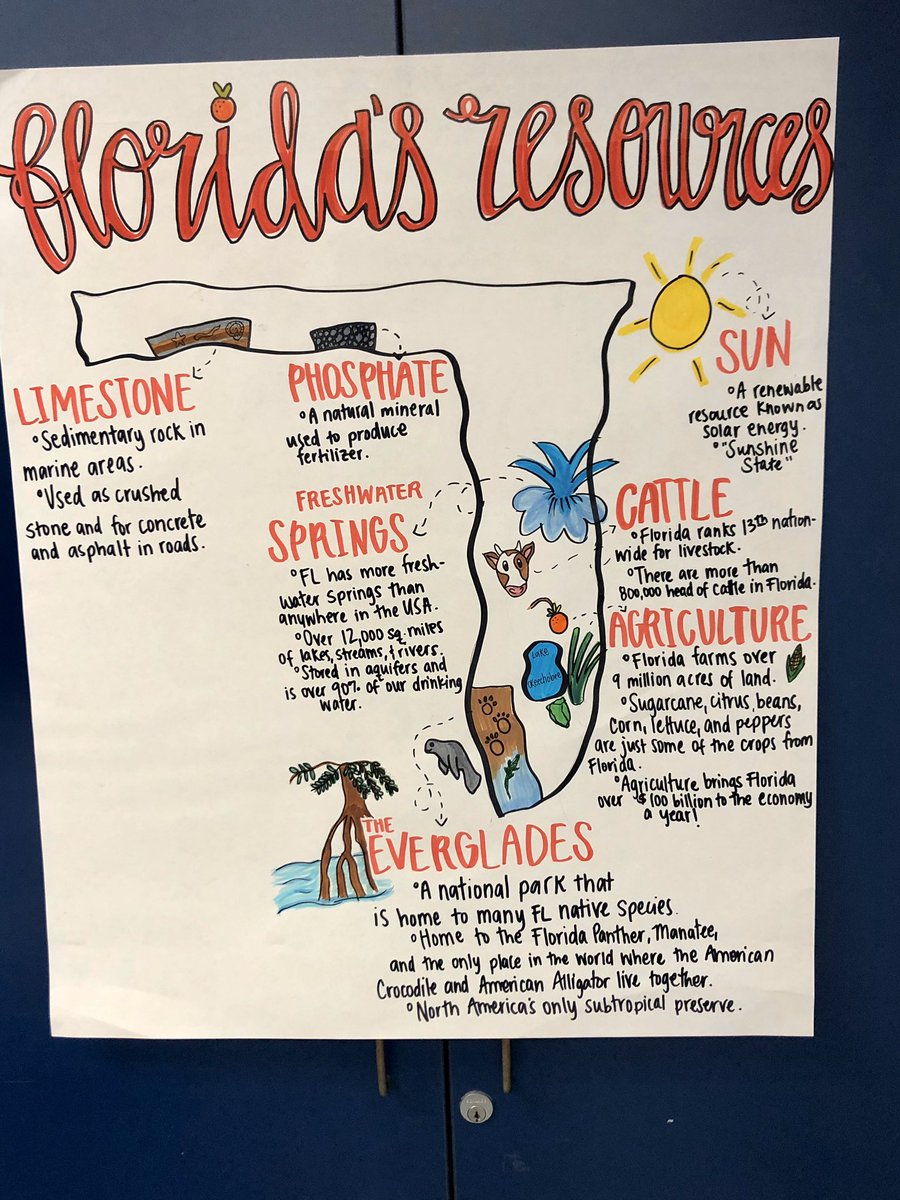 florida's resources
LIMESTONE
°Sedimentary rock in
marine areas.
°Used as crushed
stone and for concrete
and asphalt in roads.
PHOSPHATE
°A natural mineral
used to produce
fertilizer.
SUN
°A renewable
resource known as
solar energy.
°"Sunshine
State"
FRESHWATER
SPRINGS
°FL has more fresh-
water springs than
anywhere in the USA.
°Over 12,000 sq. miles
of lakes, streams, + rivers.
°Stored in aquifers and
is over 90% of our drinking
water.
CATTLE
°Florida ranks 13th nation-
wide for livestock.
°There are more than
800,000 head of cattle in Florida.
AGRICULTURE
°Florida farms over
9 million acres of land.
°Sugarcane, citrus, beans,
corn, lettuce, and peppers
are just some of the crops from
Florida.
°Agriculture brings Florida
over $100 billion to the economy
a year!
Lake
Okeechobee
THE
EVERGLADES
°A national park that
is home to many FL native species.
°Home to the Florida Panther, Manatee,
and the only place in the world where the American
Crocodile and American Alligator live together.
°North America's only subtropical preserve.